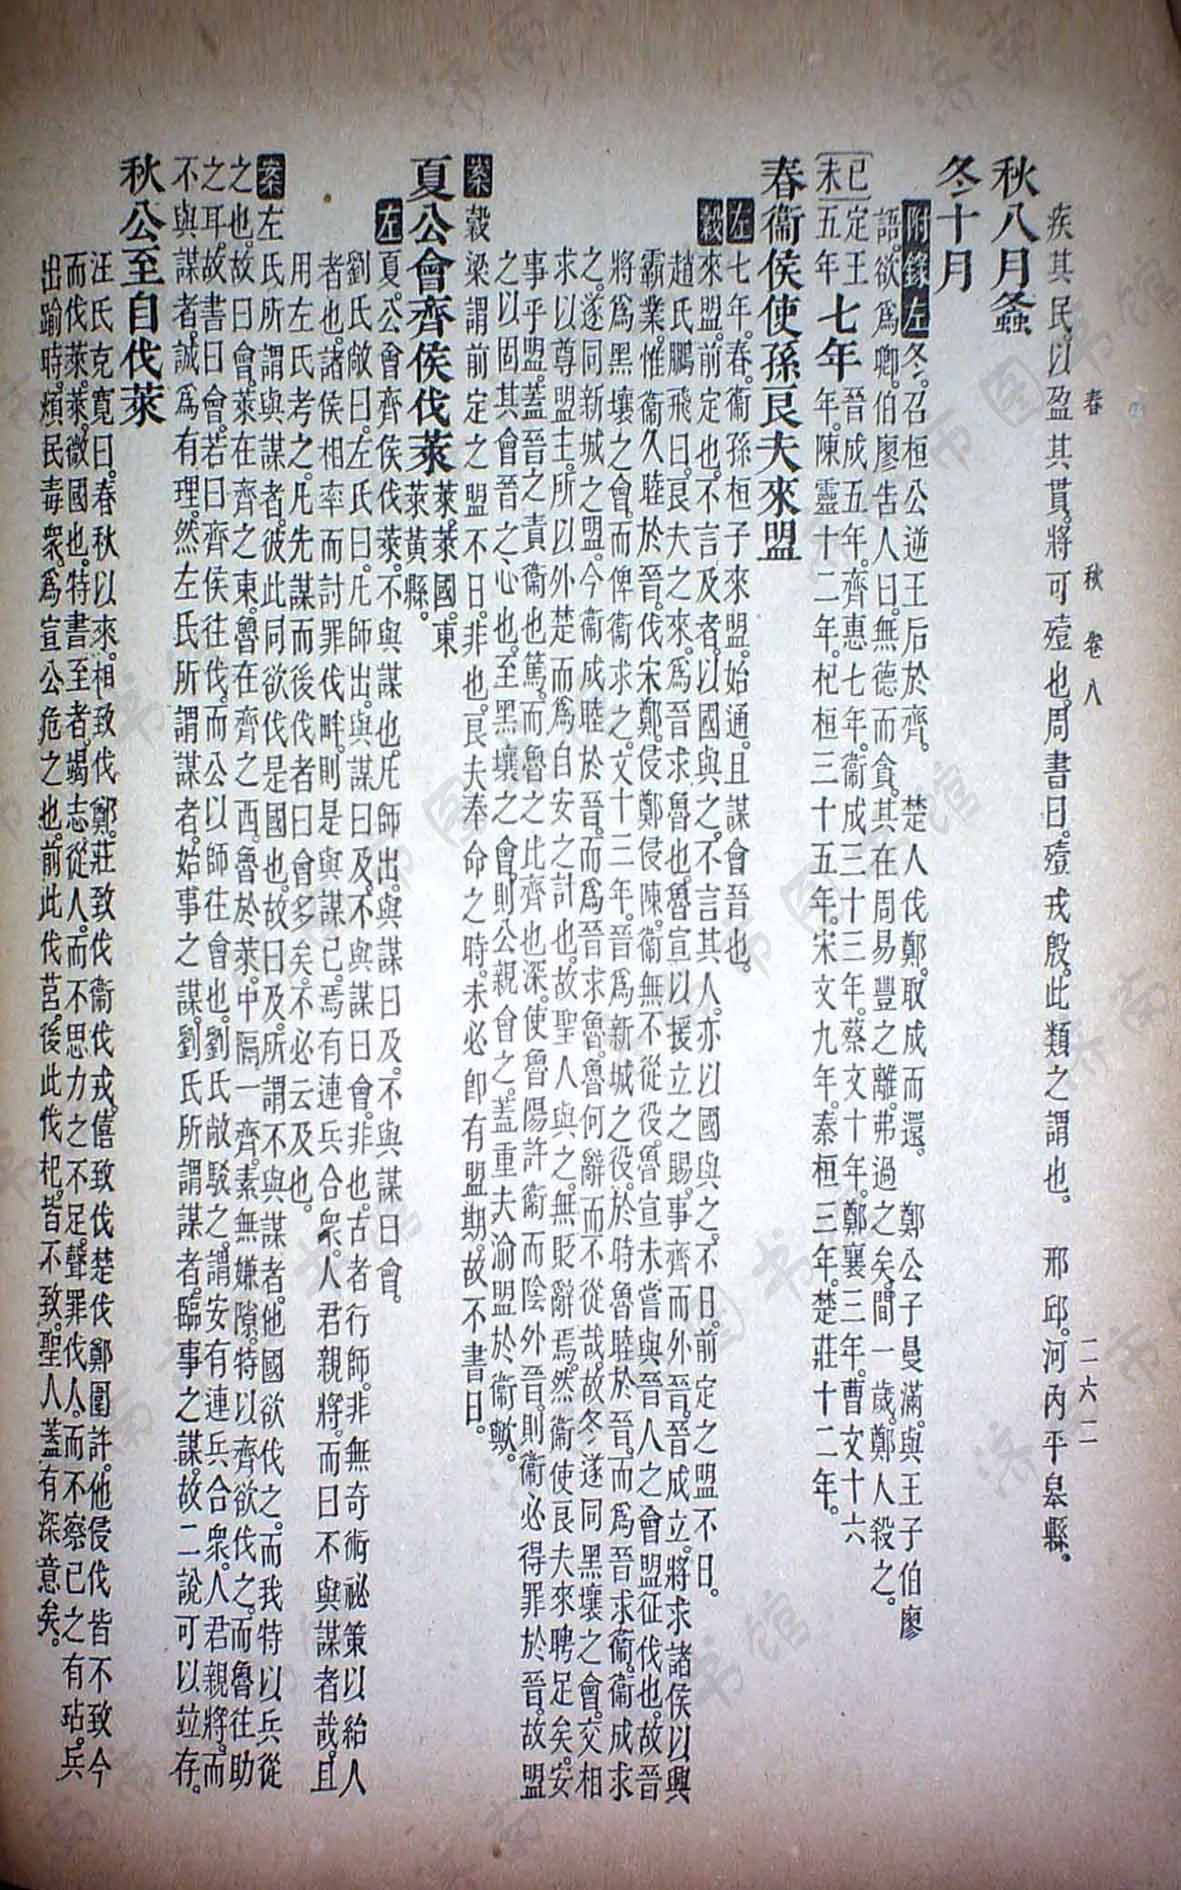 春　秋　卷八　二六一
疾其民。以盈其貫。將可殪也。周書曰。殪戎殷。此類之謂也。　邢邱。河內平皋縣。
秋八月螽
冬十月
附錄左冬。召桓公逆王后於齊。　楚人伐鄭。取成而還。　鄭公子曼滿。與王子伯廖
語。欲爲卿。伯廖告人曰。無德而貪。其在周易豐之離。弗過之矣。間一歲。鄭人殺之。
己未定王五年七年晉成五年。齊惠七年。衞成三十三年。蔡文十年。鄭襄三年。曹文十六
年。陳靈十二年。杞桓三十五年。宋文九年。秦桓三年。楚莊十二年。
春衞侯使孫良夫來盟
左七年。春。衞孫桓子來盟。始通。且謀會晉也。
穀來盟。前定也。不言及者。以國與之。不言其人。亦以國與之。不日。前定之盟不日。
趙氏鵬飛曰。良夫之來。爲晉求魯也。魯宣以援立之賜。事齊而外晉。晉成立。將求諸侯以興
霸業。惟衞久睦於晉。伐宋鄭。侵鄭侵陳。衞無不從役。魯宣未嘗與晉人之會盟征伐也。故晉
將爲黑壤之會。而俾衞求之。文十三年。晉爲新城之役。於時魯睦於晉。而爲晉求衞。衞成求
之。遂同新城之盟。今衞成睦於晉。而爲晉求魯。魯何辭而不從哉。故冬遂同黑壤之會。交相
求以尊盟主。所以外楚而爲自安之計也。故聖人與之。無貶辭焉。然衞使良夫來聘足矣。安
事乎盟。蓋晉之責衞也篤。而魯之比齊也深。使魯陽許衞而陰外晉。則衞必得罪於晉。故盟
之以固其會晉之心也。至黑壤之會。則公親會之。蓋重夫渝盟於衞歟。
案穀梁謂前定之盟不日。非也。良夫奉命之時。未必卽有盟期。故不書日。
夏公會齊侯伐萊萊。萊國。東萊黃縣。
左夏。公會齊侯伐萊。不與謀也。凡師出。與謀曰及。不與謀曰會。
劉氏敞曰。左氏曰。凡師出。與謀曰及。不與謀曰會。非也。古者行師。非無奇術祕策以紿人
者也。諸侯相率而討罪伐畔。則是與謀已。焉有連兵合衆。人君親將。而曰不與謀者哉。且
用左氏考之。凡先謀而後伐者曰會多矣。不必云及也。
案左氏所謂與謀者。彼此同欲伐是國也。故曰及。所謂不與謀者。他國欲伐之。而我特以兵從
之也。故曰會。萊在齊之東。魯在齊之西。魯於萊。中隔一齊。素無嫌隙。特以齊欲伐之。而魯往助
之耳。故書曰會。若曰齊侯往伐。而公以師往會也。劉氏敞駁之。謂安有連兵合衆。人君親將。而
不與謀者。誠爲有理。然左氏所謂謀者。始事之謀。劉氏所謂謀者。臨事之謀。故二說可以竝存。
秋公至自伐萊
汪氏克寬曰。春秋以來。相致伐鄭。莊致伐衞伐戎。僖致伐楚伐鄭圍許。他侵伐皆不致。今
而伐萊。萊。微國也。特書至者。竭志從人。而不思力之不足。聲罪伐人。而不察己之有玷。兵
出踰時。煩民毒衆。爲宣公危之也。前此伐莒。後此伐杞。皆不致。聖人蓋有深意矣。